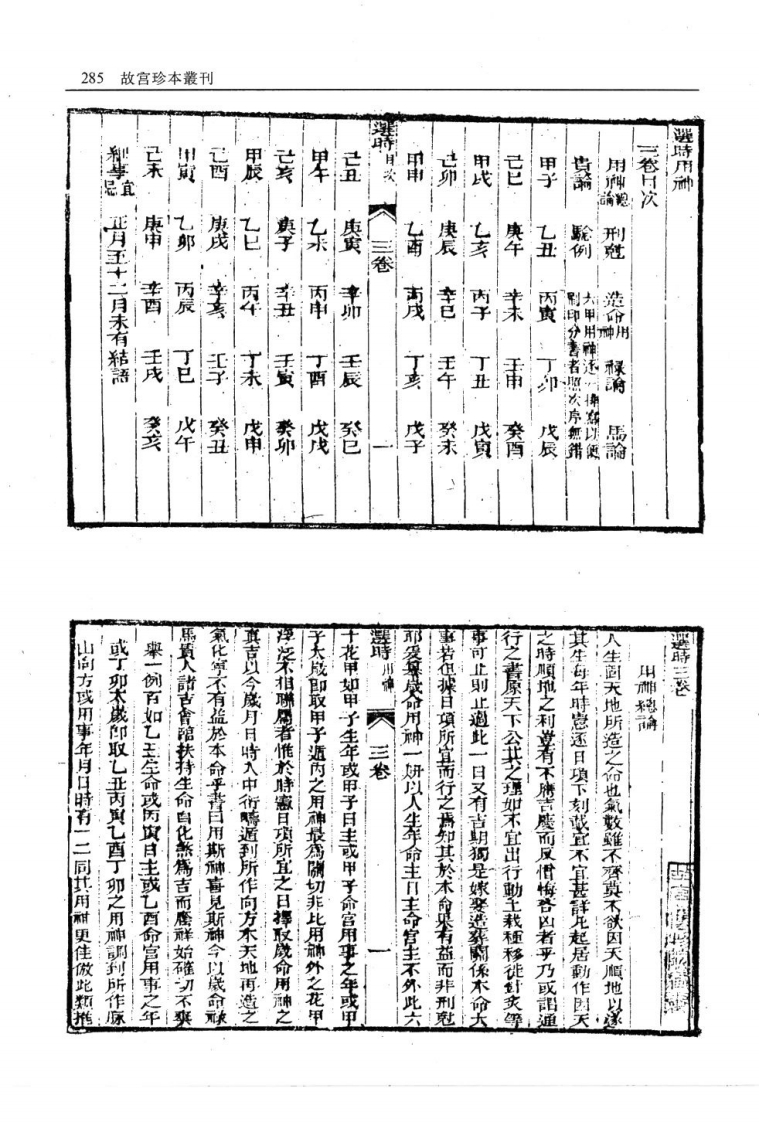 285 故宫珍本叢刊
選時用神
三卷目次
用神總論 刑尅 造命用神 祿論 馬論
貴論 驗例 六甲用神逐一摘寫以便刷印分書者照次序無錯
甲子 乙丑 丙寅 丁卯 戊辰
己巳 庚午 辛未 壬申 癸酉
甲戌 乙亥 丙子 丁丑 戊寅
己卯 庚辰 辛巳 壬午 癸未
甲申 乙酉 丙戌 丁亥 戊子
選時 目次 三卷 一
己丑 庚寅 辛卯 壬辰 癸巳
甲午 乙未 丙申 丁酉 戊戌
己亥 庚子 辛丑 壬寅 癸卯
甲辰 乙巳 丙午 丁未 戊申
己酉 庚戌 辛亥 壬子 癸丑
甲寅 乙卯 丙辰 丁巳 戊午
己未 庚申 辛酉 壬戌 癸亥
細事宜忌 正月至十二月末有結語
選時三卷
用神總論
人生因天地所造之命也氣數雖不齊莫不欲因天順地以遂
其生每年時憲逐日項下刻載宜不宜甚詳凡起居動作因天
之時順地之利豈有不膺吉慶而反惜悔咎凶者乎乃或謂通
行之書原天下公共之理如不宜出行動土栽種移徙針灸等
事可止則止過此一日又有吉期獨是嫁娶造葬關係本命大
事若但據日項所宜而行之焉知其於本命果有益而非刑尅
耶爰纂歲命用神一册以人生年命主日主命宮主不外此六
選時 用神 三卷 一
十花甲如甲子生年或甲子日主或甲子命宮用事之年或甲
子太歲即取甲子遁內之用神最爲關切非比用神外之花甲
浮泛不相聯屬者惟於時憲日項所宜之日擇取歲命用神之
眞吉以今歲月日時入中衍疇遁到所作向方本天地再造之
氣化寧不有益於本命乎書曰用斯神喜見斯神今以歲命祿
馬貴人諸吉會諧扶持生命自化煞爲吉而膺祥始確切不爽
舉一例百如乙丑生命或丙寅日主或乙酉命宮用事之年
或丁卯太歲即取乙丑丙寅乙酉丁卯之用神調到所作脉
山向方或用事年月日時有一二同其用神更佳倣此類推